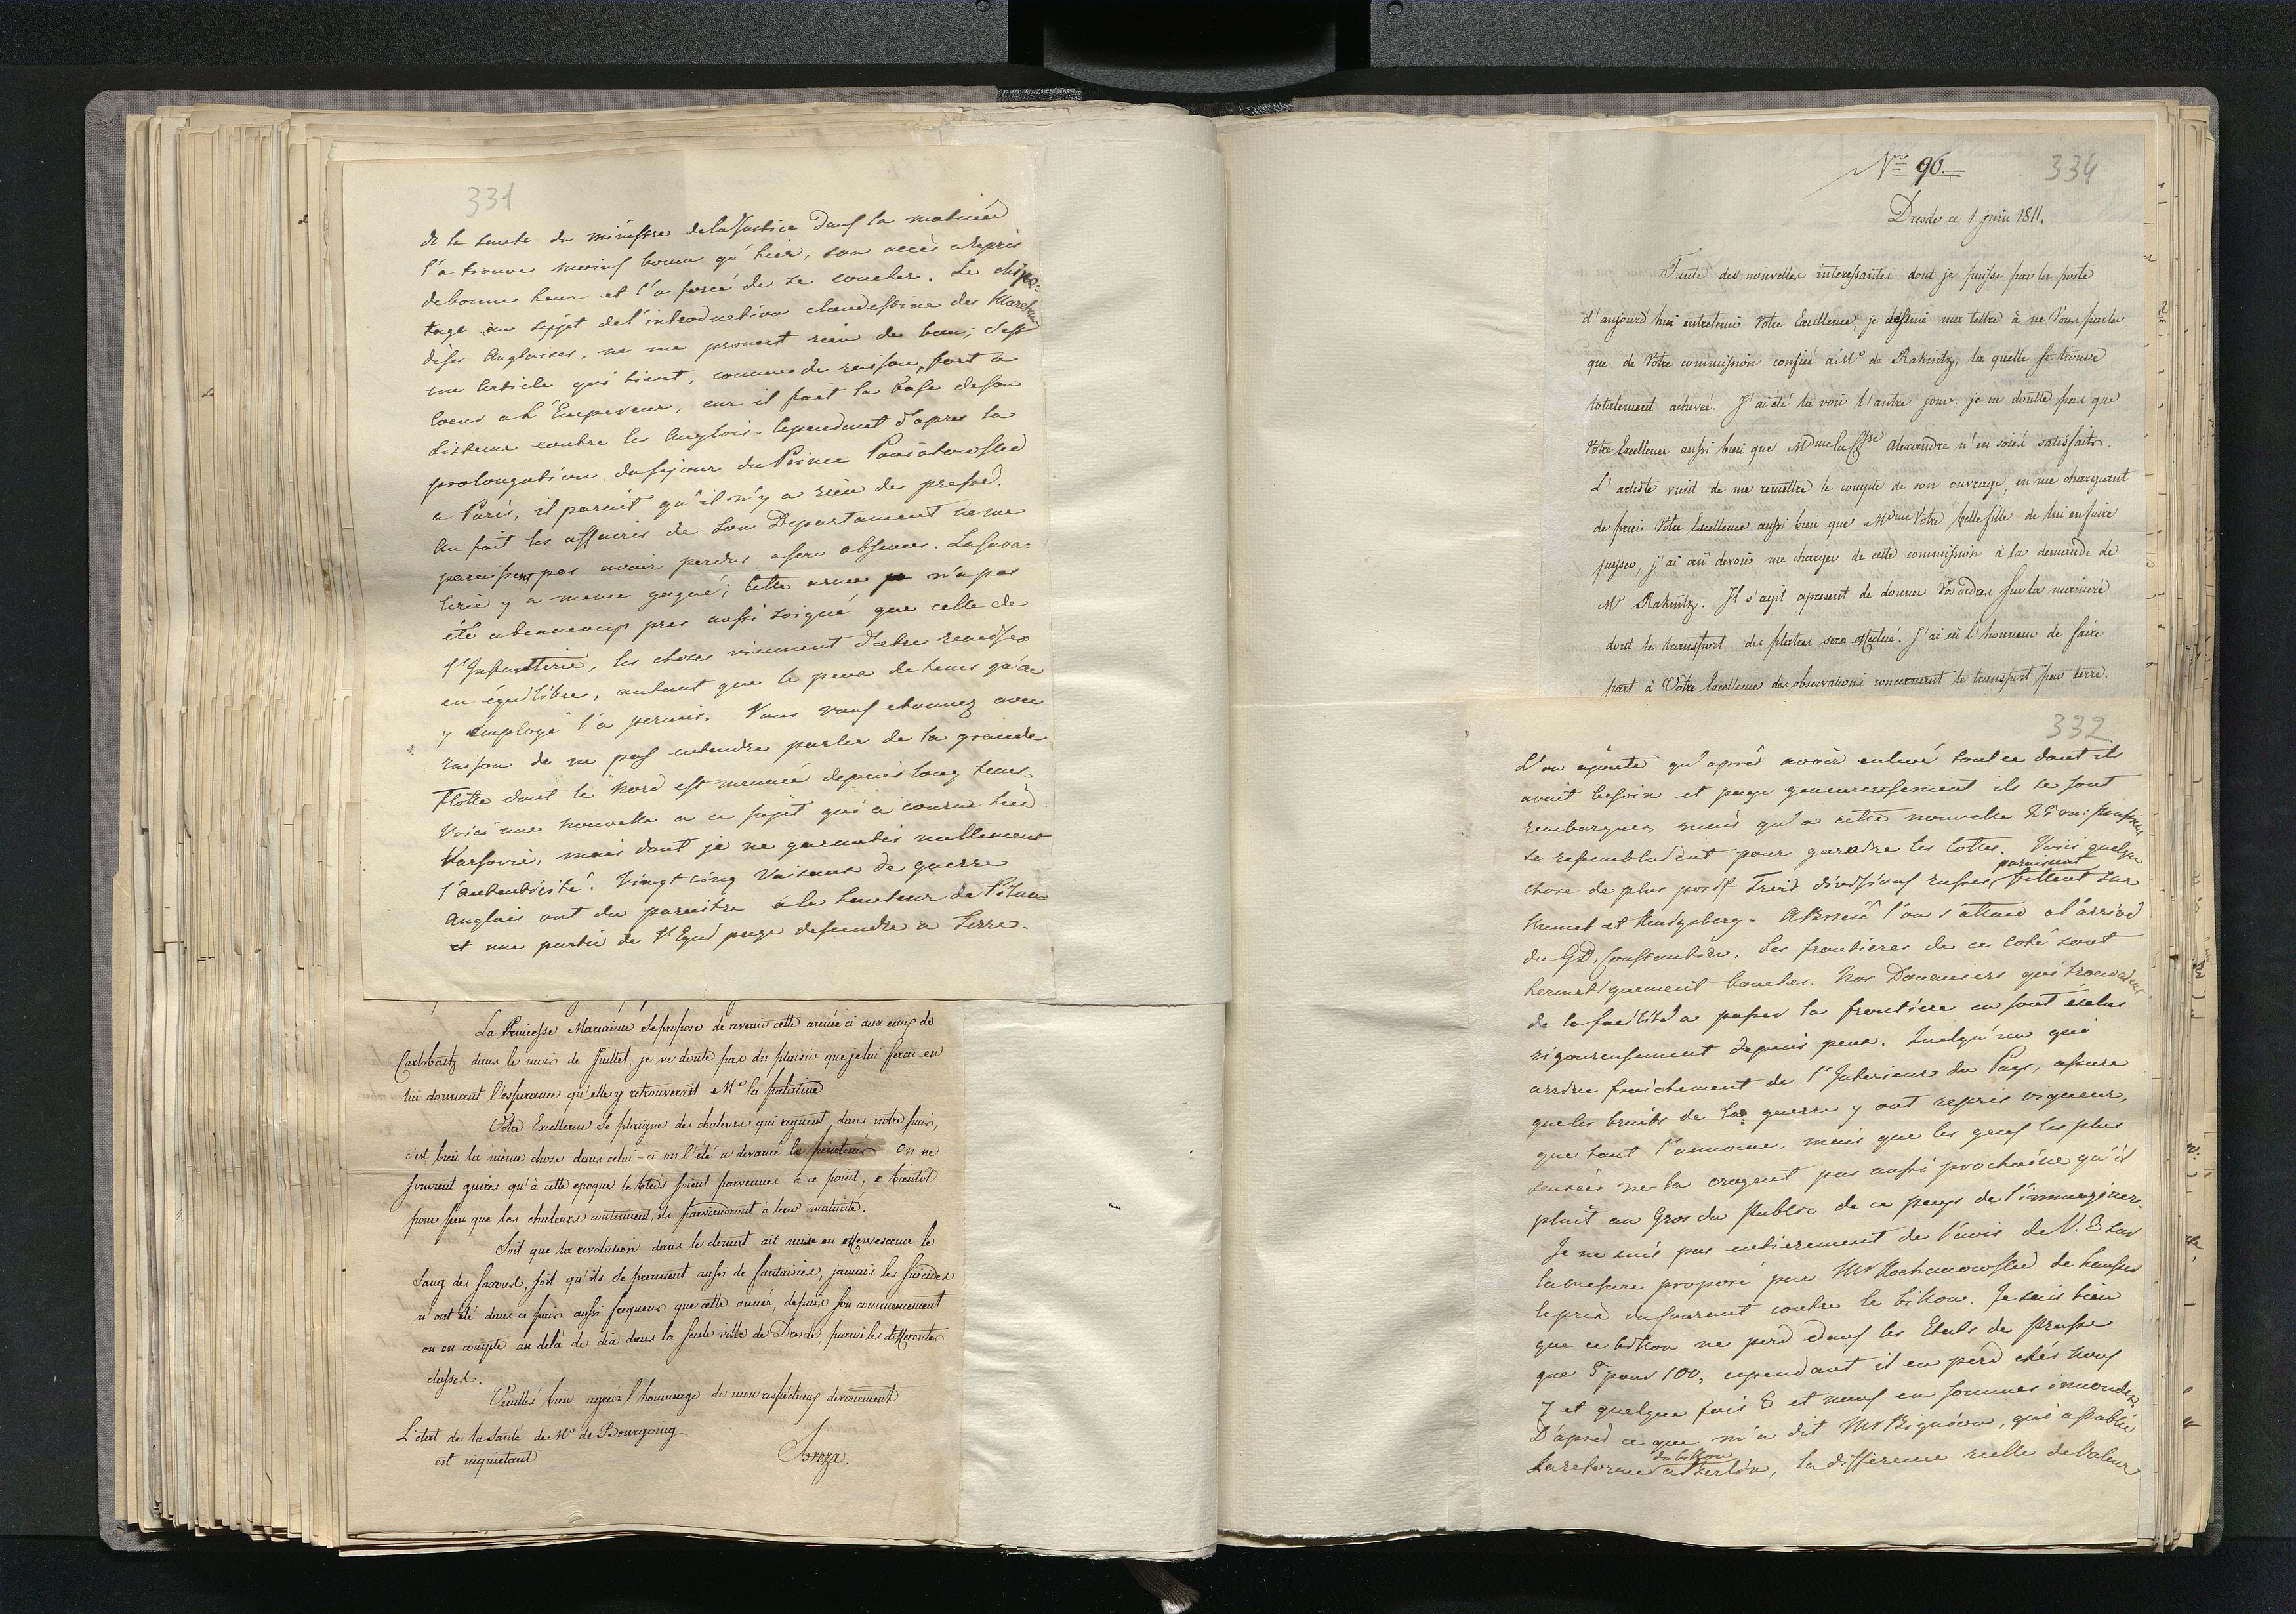 331
de la santé du ministre de la Justice dans la matinée
l'a trouvé moins bonne qu'hier, son accès a repris
de bonne heur et l'a forcé de se coucher. Le chipo-
tage au sujet de l'introduction clandestine des Marchan
dises Anglaises, ne me promet rien de bon; c'est
un article qui tient, comme de raison, fort a
coeur a l'Empereur, car il fait la base de son
sisteme contre les Anglois. Cependant d'apres la
prolongation du sejour du Prince Poniatowski
a Paris, il parait qu'il n'y a rien de pressé.
Au fait les affaires de son Departament ne me
paraissent pas avoir perdus a son absence. La Cava-
lerie y a meme gagné; cette arme n'a pas
été a beaucoup pres aussi soigné que celle de
l'Infantterie, les choses viennent d'etre remises
en équilibre, autant que le peux de tems qu'on
y employé l'a permis. Vous vous etonnez avec
raison de ne pas entendre parler de la grande
Flotte dont le Nord est menacé depuis long tems.
Voici une nouvelle a ce sujet qui a couru hier
Varsovie, mais dont je ne garantis nullement
l'autenticité. Vingt cinq Vaisaux de guerre
Anglais ont du paraitre a la hauteur de Pilau
et une partie de l'Equipage descendre a Terre.
La Princesse Marianne se propose de revenir cette année ci aux eaux de
Carlsbad dans le mois de Juillet, je ne doute pas du plaisir que je lui ferai en
lui donnant l'esperance qu'elle y retrouverait Me la palatine
Votre Excellence se plaigne des chaleurs qui regnent dans notre pais,
c'est bien la même chose dans celui-ci ou l'été a devancé le printems. On ne
souvient gueres qu'à cette epoque le bleds soient parvenues à ce point, & bientôt
pour peu que les chaleurs continuent, ils parviendront à leur maturité.
Soit que la revolution dans le climat ait mise en effervescence le
sang des Saxons, soit qu'ils se prennent aussi de fantaisies, jamais les suicides
n'ont été dans ce pais aussi frequens que cette année, depuis son commencement
on en compte au delà de dix dans la seule ville de Dresde parmi les differentes
classes.
Veuillés bien agréer l'hommage de mon respectueux devouement
L'etat de la Santé de Mr de Bourgoing
est inquietant
Breza.
Nro 96.
334
Dresde ce 1 juin 1811.
Faute des nouvelles interessantes dont je puisse par la poste
d'aujourd'hui entretenir Votre Excellence, je destine ma lettre à ne Vous parler
que de Votre commission confiée à Mr de Raknitz, la quelle se trouve
totalement achevée. J'ai été la voir l'autre jour, je ne doutte pas que
Votre Excellence aussi bien que Mdme la Ctsse Alexandre n'en soié satisfaits.
L'artiste vient de me remettre le compte de son ouvrage, en me chargeant
de prier Votre Excellence aussi bien que Mdme Votre belle fille de lui en faire
passer, j'ai cru devoir me charger de cette commission à la demande de
Mr Raknitz. Il s'agit apresent de donner Vos ordres sur la maniere
dont le transport des platres sera effectué. J'ai eü l'honneur de faire
part à Votre Excellence des observations concernant le transport par terre.
332
L'on ajoute qu'après avoir enlevé tout ce dont ils
avait besoin et payé genereusement ils se sont
rembarqués, mais qu'a cette nouvelle
se rassemblaient pour garadre les cottes. Voici quelque
chose de plus positif Trois divisions russes paraissent sur
Memel et Kenigsberg. l'on s'attend a l'arrivé
du G.D. Constantin. Les frontieres de ce coté sont
hermetiquement bouchés. Nos Douaniers qui trouvaient
de la facilité a passer la frontiere en sont exclus
rigoureusement depuis peux. Quelqu'un qui
arrive fraichement de l'Interieur du Pays, assure
que les bruits de la guerre y ont repris vigueur,
que tout l'annonce, mais que les gens les plus
sensées ne la croyent pas aussi prochaine qu'il
plait au Gros du Public de ce pays de l'immaginer.
Je ne suis pas entierement de l'avis de V. E. sur
la mesure proposé par Mr Kochanowski de hausser
le prix du courant contre le billon. Je sais bien
que ce billon ne perd dans les Etats de Prusse
que 5 pour 100, cependant il en perd chés nous
7 et quelque fois 8 et neuf en sommes inondés
D'aprés ce que m'a dit Mr Bignon, qui a publié
la reforme du billon a Berlin, la difference reelle de Valeur